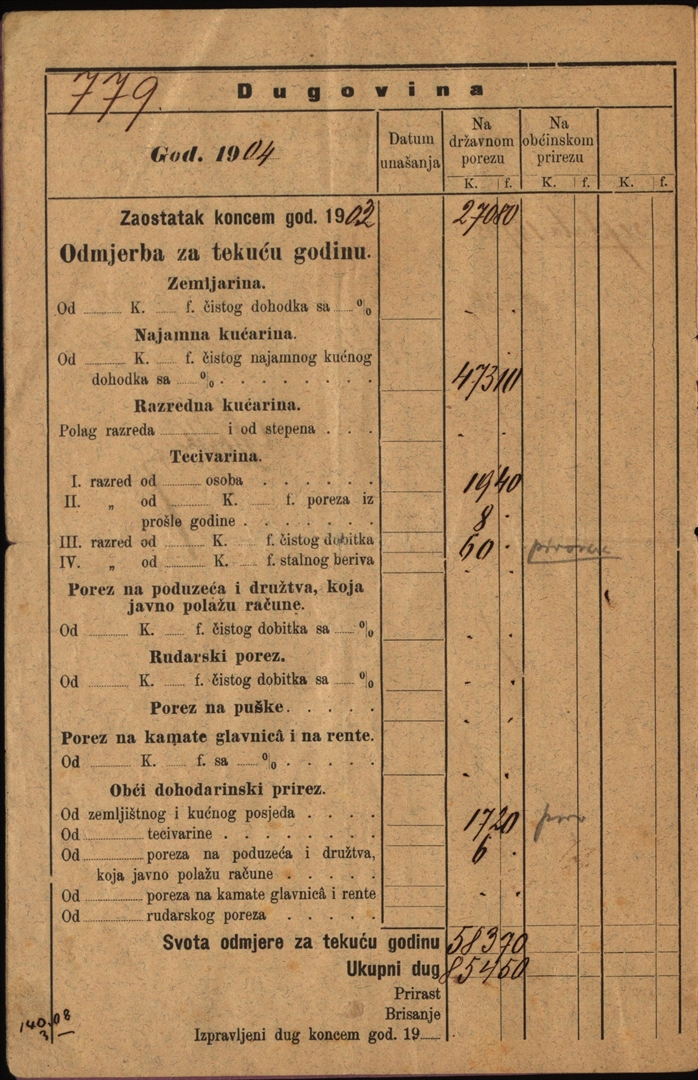 779.
Dugovina
God. 1904
Datum unašanja
Na državnom porezu
Na obćinskom prirezu
K. f. K. f. K. f.
Zaostatak koncem god. 1903 270 80
Odmjerba za tekuću godinu.
Zemljarina.
Od ........ K. ..... f. čistog dohodka sa ..... % - .
Najamna kućarina.
Od ........ K. ..... f. čistog najamnog kućnog
dohodka sa ..... % . . . . . . . . 473 10
Razredna kućarina.
Polag razreda ............ i od stepena . . . - .
Tecivarina.
I. razred od ........ osoba . . . . . . 19 40
II. „ od ........ K. ..... f. poreza iz
prošle godine . . . . . . . 8 .
III. razred od ........ K. ..... f. čistog dobitka 60 .
IV. „ od ........ K. ..... f. stalnog beriva - .
Porez na poduzeća i družtva, koja
javno polažu račune.
Od ........ K. ..... f. čistog dobitka sa ..... % - .
Rudarski porez.
Od ........ K. ..... f. čistog dobitka sa ..... % - .
Porez na puške. . . . . - .
Porez na kamate glavnicâ i na rente.
Od ........ K. ..... f. sa ..... % . . . . . - .
Obći dohodarinski prirez.
Od zemljištnog i kućnog posjeda . . . . 17 20
Od ............ tecivarine . . . . . . . . 6 .
Od ............ poreza na poduzeća i družtva,
koja javno polažu račune . . . . .
Od ............ poreza na kamate glavnicâ i rente - .
Od ............ rudarskog poreza . . . . .
Svota odmjere za tekuću godinu 583 70
Ukupni dug 854 50
Prirast
Brisanje
Izpravljeni dug koncem god. 19....
140.08
3